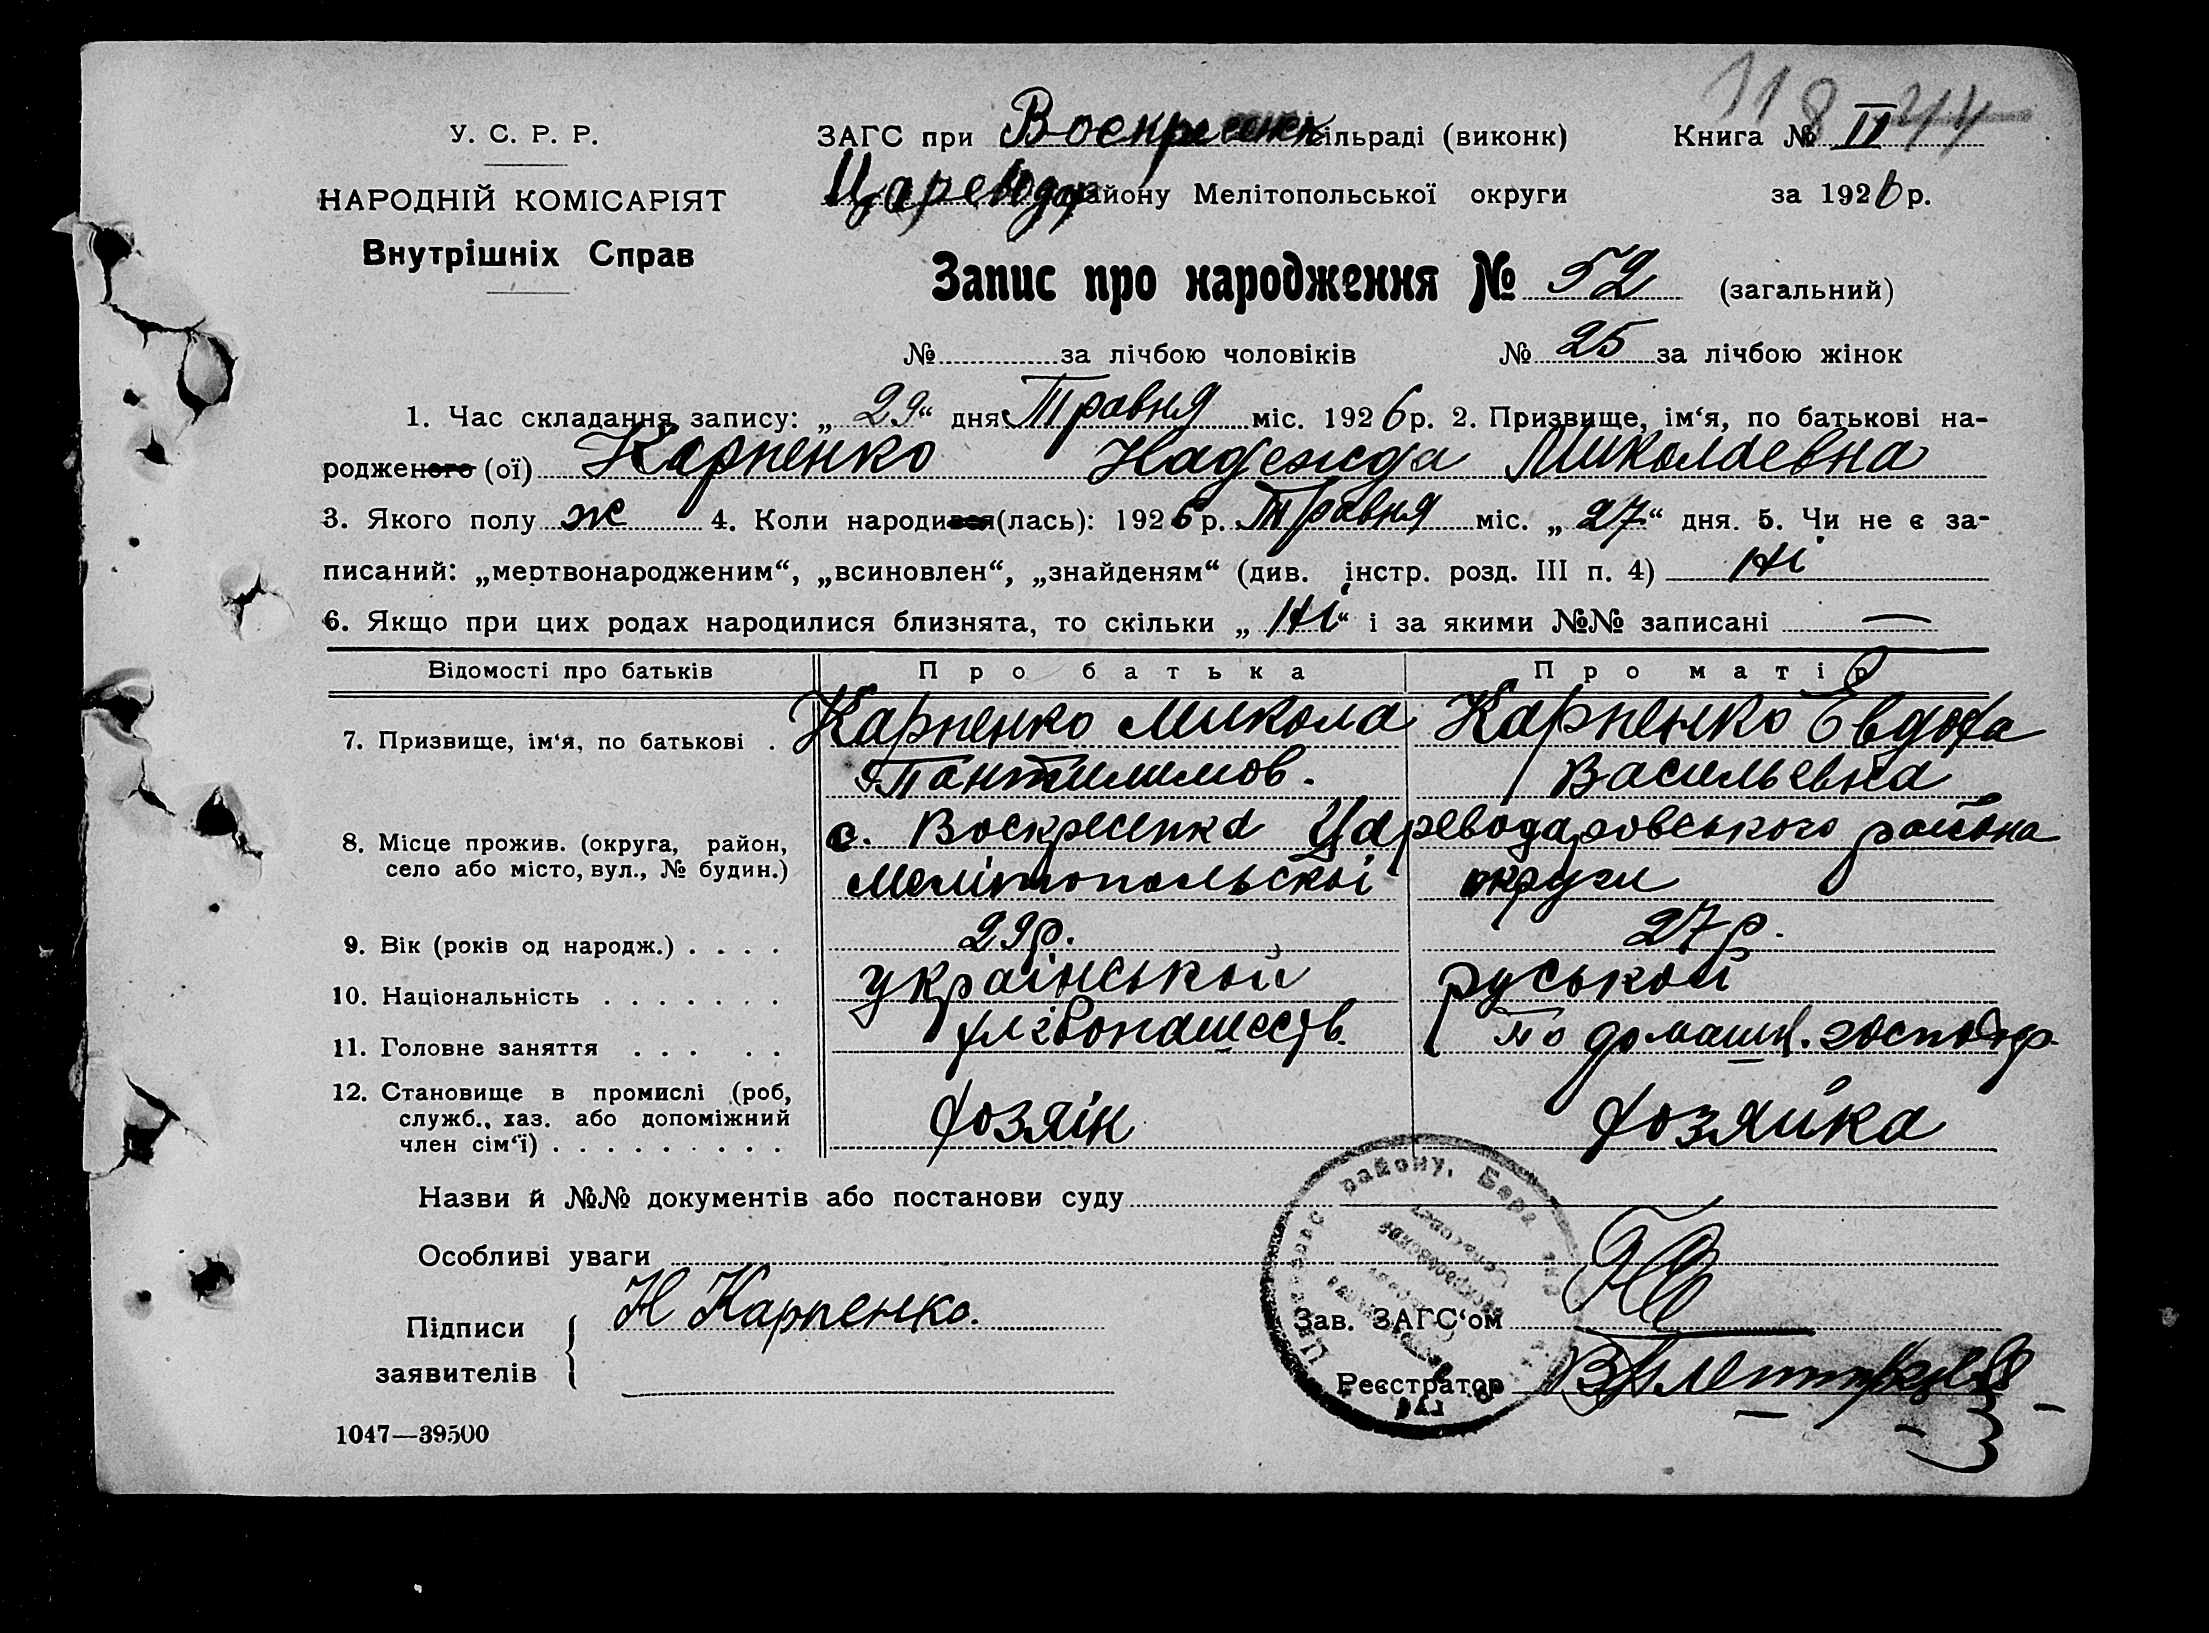 118 44
У. С. Р. Р.
НАРОДНІЙ КОМІСАРІЯТ
Внутрішніх Справ
ЗАГС при Воскресенк сільраді (виконк)
Книга № II
Цареводар району Мелітопольської округи
за 1926 р.
Запис про народження № 52 (загальний)
№ за лічбою чоловіків № 25 за лічбою жінок
1. Час складання запису: „29“ дня Травня міс. 1926 р. 2. Призвище, ім‘я, по батькові на-
родженого (ої) Карпенко Надежда Миколаевна
3. Якого полу ж 4. Коли народився (лась): 1926 р. Травня міс. „27“ дня. 5. Чи не є за-
писаний: „мертвонародженим“, „всиновлен“, „знайденям“ (див. інстр. розд. III п. 4) Ні
6. Якщо при цих родах народилися близнята, то скільки „Ні“ і за якими №№ записані —
Відомості про батьків Про батька Про матір
7. Призвище, ім‘я, по батькові . Карпенко Микола Карпенко Евдоха
Пантилимов. Васильевна
8. Місце прожив. (округа, район, с. Воскресенка Цареводаровського района
село або місто, вул., № будин.) Мелітопольскоі округи
9. Вік (років од народж.) . . . . 29р. 27р.
10. Національність . . . . . . . українськой руськой
11. Головне заняття . . . . . хлібопашеств. по домашн. господар
12. Становище в промислі (роб,
служб., хаз. або допоміжний хозяін хозяйка
член сім‘ї) . . . . . . . . .
Назви й №№ документів або постанови суду
Особливі уваги
району, Бер
Підписи
заявителів
Н Карпенко.
Зав. ЗАГС‘ом
Реєстратор
1047—39500